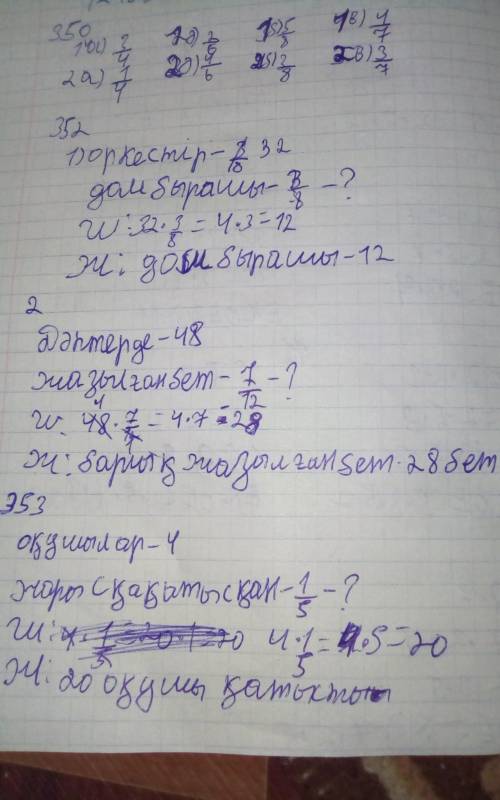 350
1а) 3/4 1б) 5/8 1в) 4/7
2а) 1/4 2б) 3/8 2в) 3/7
352
1) оркестір - 32
домбырашы - 3/8 - ?
Ш: 32 · 3/8 = 4 · 3 = 12
Ж: домбырашы - 12
2
Дәптерде - 48
жазылған бет - 7/12 - ?
Ш: 48 · 7/12 = 4 · 7 = 28
Ж: барлық жазылған бет · 28 бет
353
оқушылар - 4
жарысқа қатысқан - 1/5 - ?
Ш: 4 · 1/5 = 4 · 5 = 20
Ж: 20 оқушы қатысты